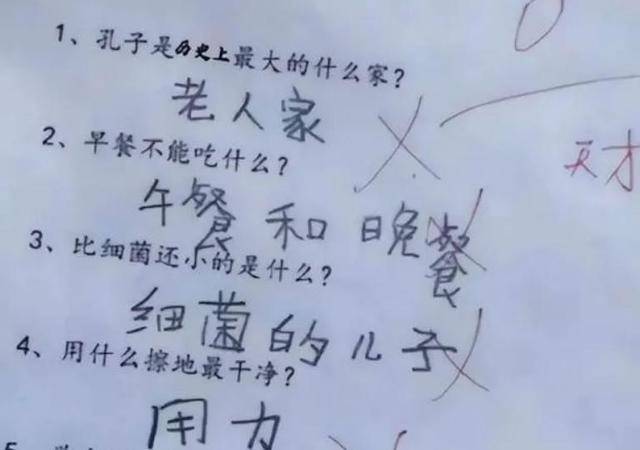 1、孔子是历史上最大的什么家?
老人家
天才
2、早餐不能吃什么?
午餐和晚餐
3、比细菌还小的是什么?
细菌的儿子
4、用什么擦地最干净?
用力